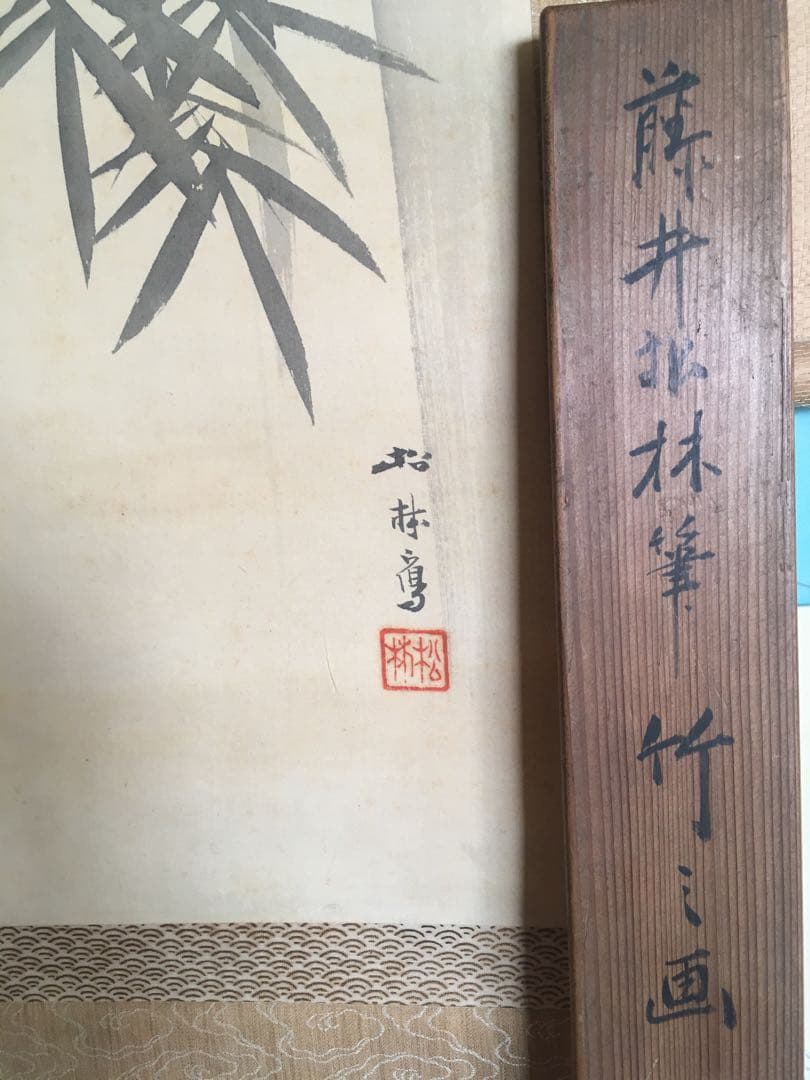 藤井松林筆 竹之画
松林寫
松林